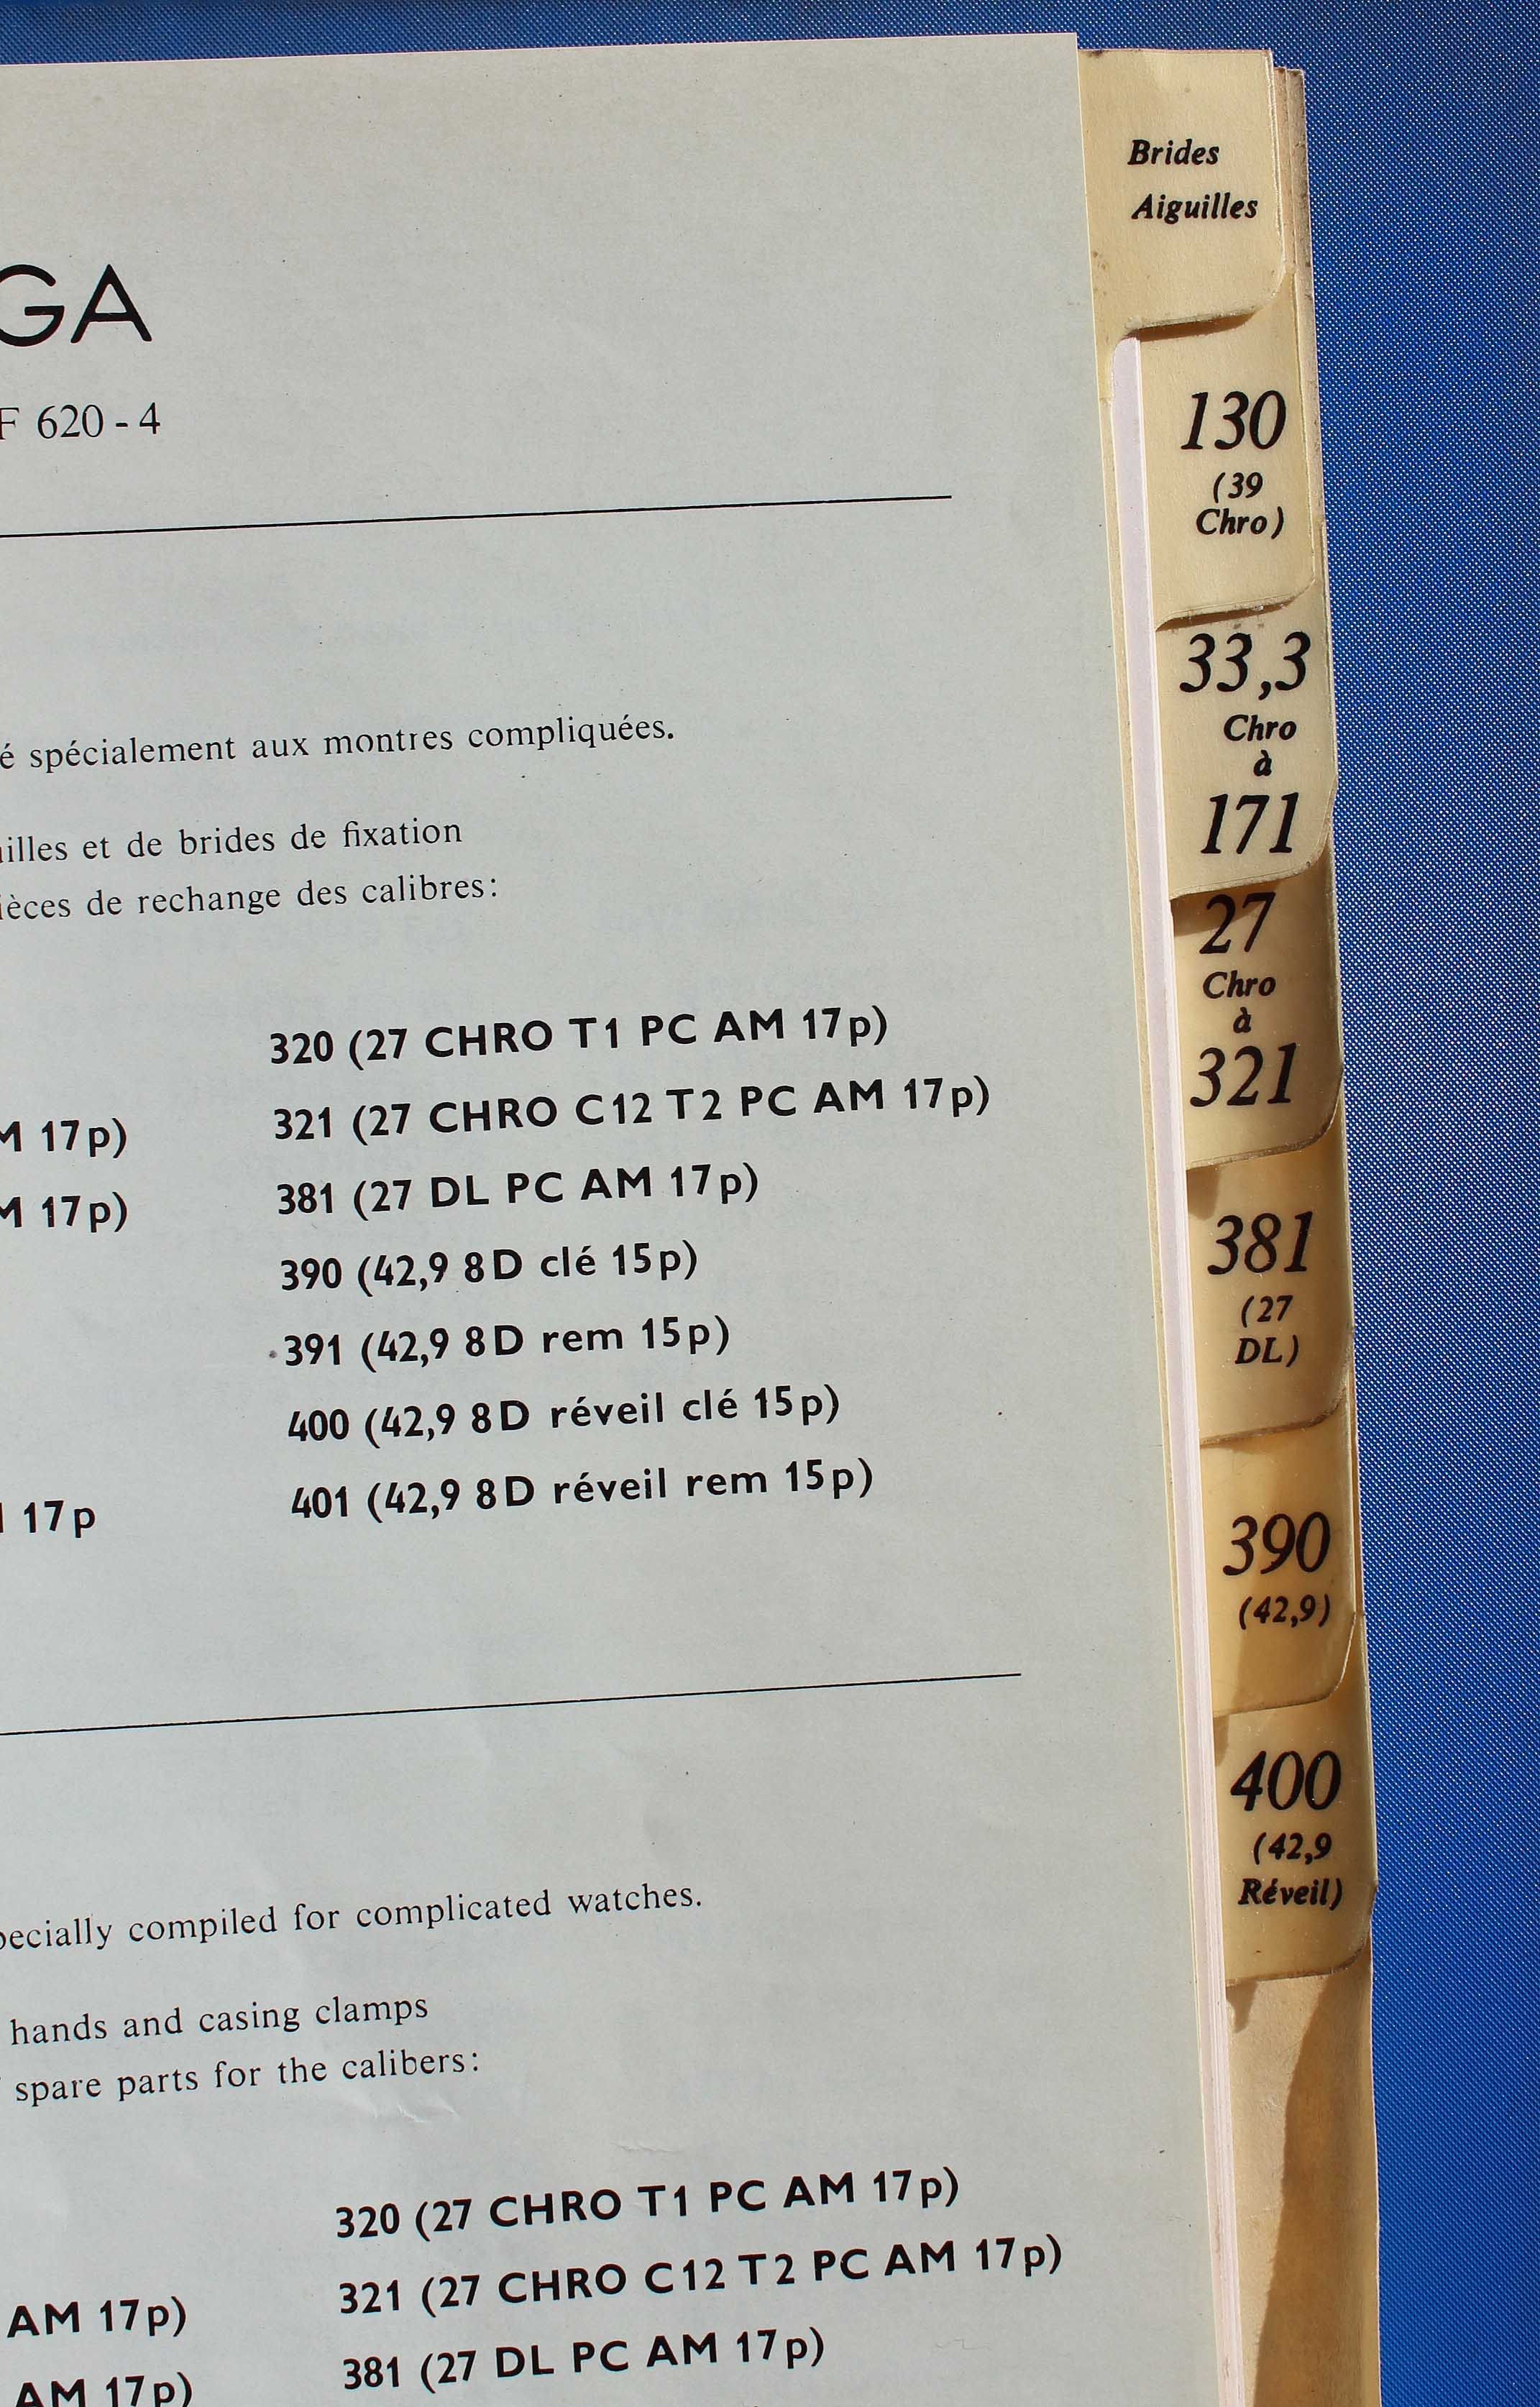 GA
F 620 - 4
é spécialement aux montres compliquées.
illes et de brides de fixation
ièces de rechange des calibres:
320 (27 CHRO T1 PC AM 17p)
M 17p)
321 (27 CHRO C12 T2 PC AM 17p)
M 17p)
381 (27 DL PC AM 17p)
390 (42,9 8D clé 15p)
391 (42,9 8D rem 15p)
400 (42,9 8D réveil clé 15p)
17p
401 (42,9 8D réveil rem 15p)
pecially compiled for complicated watches.
hands and casing clamps
spare parts for the calibers:
320 (27 CHRO T1 PC AM 17p)
AM 17p)
321 (27 CHRO C12 T2 PC AM 17p)
AM 17p)
381 (27 DL PC AM 17p)
Brides
Aiguilles
130
(39
Chro)
33,3
Chro
à
171
27
Chro
à
321
381
(27
DL)
390
(42,9)
400
(42,9
Réveil)